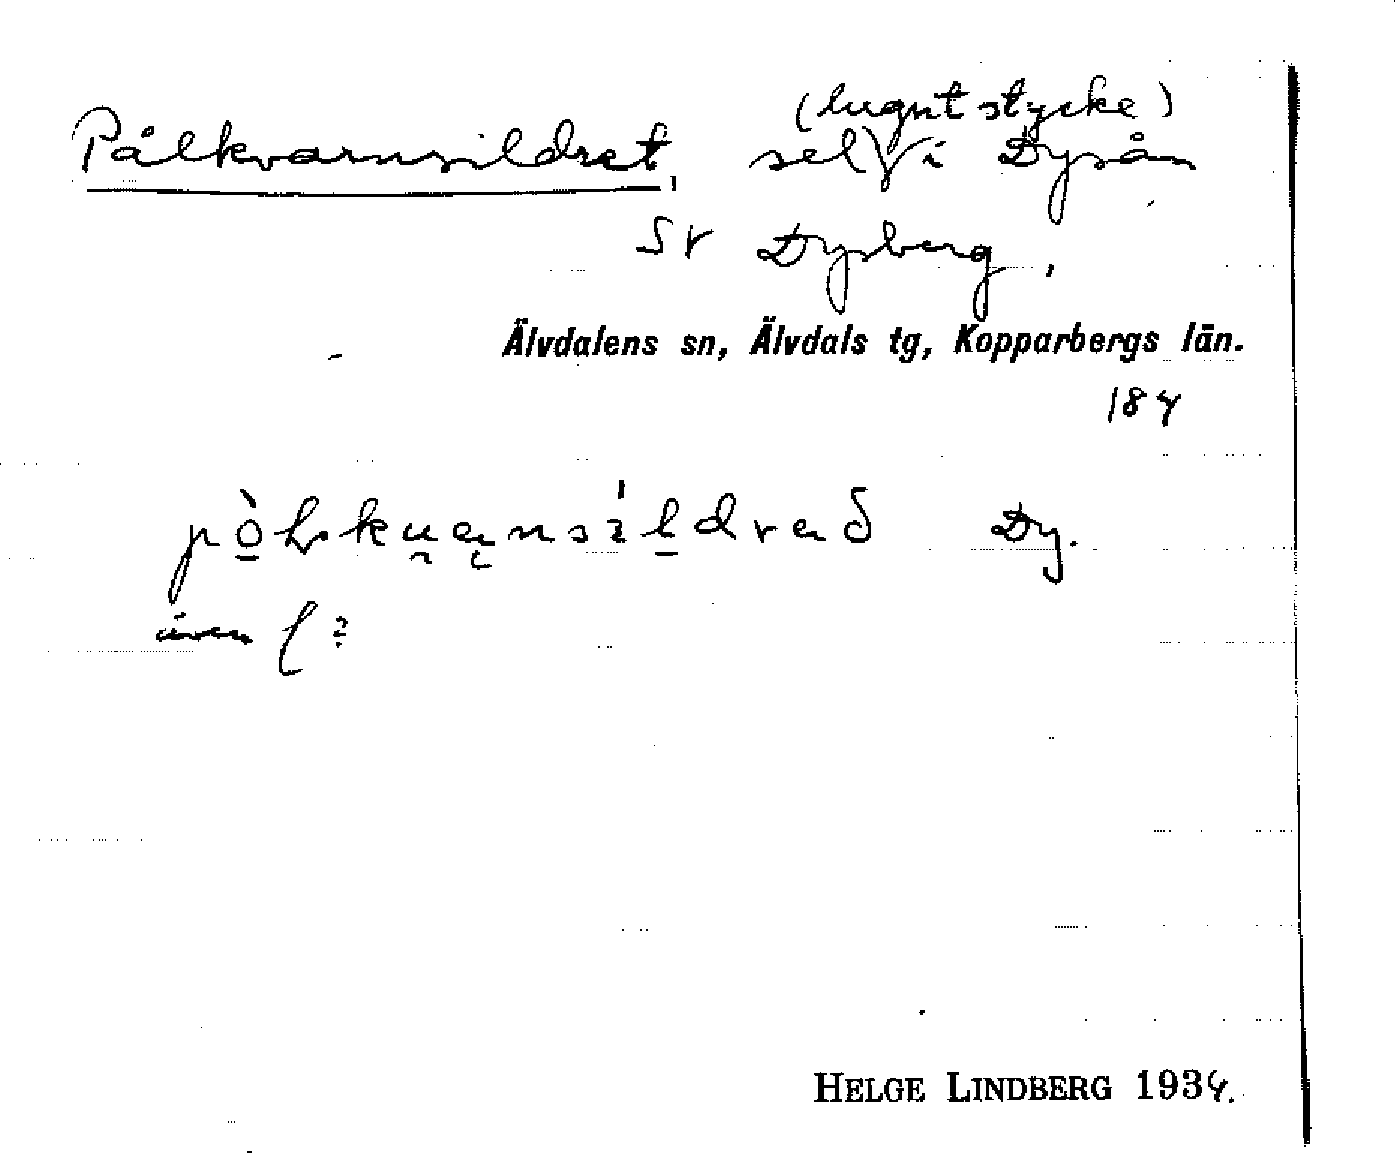 Pålkvarnsildret, sel (lugnt stycke) i Dysån
SV Dysberg,
Älvdalens sn, Älvdals tg, Kopparbergs län.
184
Dy.
även
HELGE LINDBERG 1934.